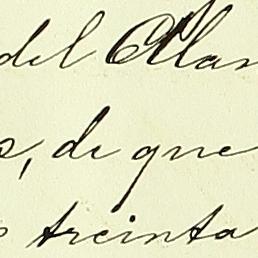 del Alan
s, de que
treinta